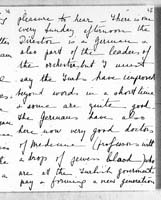 pleasure to hear – There is now
every Sunday afternoon the
Director is a German &
also part of the leaders of
the orchestra but I must
say the Turks have improved
beyond word in a short time
& some are quite good
the Germans have also
here now very good doctors
of Medicine (professors) with
a drop of jewess blood
are at the Turkish government
pay & forming a new generation